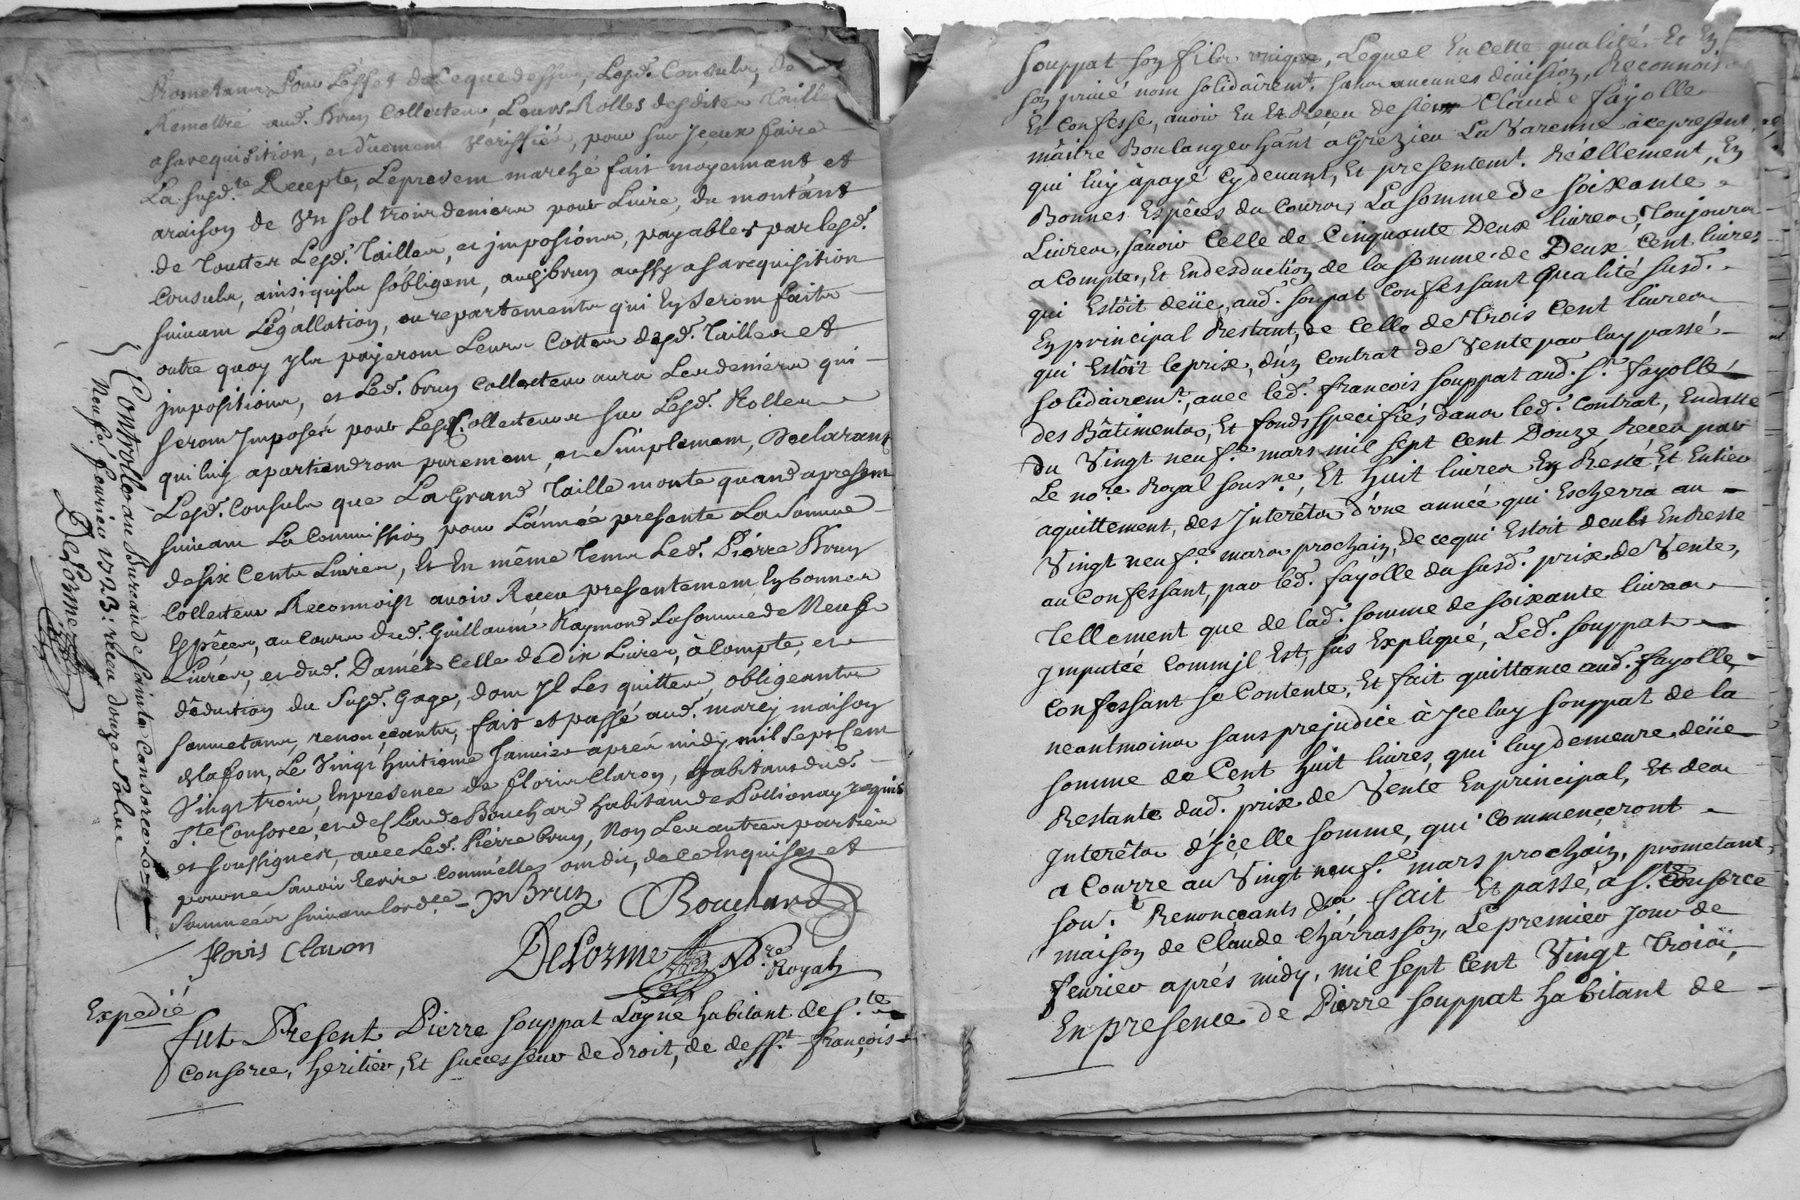 Prometans, Pour L'effet de ceque dessus, Lesd. Consuls, de
Remettre aud. Brun Collecteur Leurs Rolles desdites Tailles
asa requisition, et düement veriffiés, pour sur Jceux faire
La susd.te Recepte, Lepresent marché fait moyennant et
araison de Vn sol trois deniers pour Livre, du montánt
de Touttes Lesd. Tailles, et jmpositions, payables par lesd.
Consuls, ainsi quils sobligent, aud. brun aussy asa requisition
suivant Légallation, ou repartements qui En seront faits
outre quoy jls payeront Leurs Cottes desd. Tailles et
jmpositions, et Led. brun Collecteur aura Les deniers qui
seront Jmposés pour Lesd. Collecteurs sur Lesd. Rolles
qui luy apartiendront purement, et Simplement, Declarant
Lesd. Consuls que La Grand Taille monte quand apresent
suivant La Commission pour L'année presente La Somme
de six Cents Livres, Et En même Tems Led. Pierre Brun
Collecteur Reconnoist avoir Receu presentement En bonnes
Espêces, au Cours dud. Guillaume Raymond La somme de Neuf
Livres, et dud. Damés Celle de dix Livres, à Compte, et
déduction du Susd. Gage, dont Jl Les quitte, obligeants
soumetans, renonçeants, fait et passé aud. marcy maison
, Le Vingt huitieme Janvier aprés midy mil Sept Cent
Vingt trois, En presence de floris Claron, habitans dud.
S.te Consorce, et de Claude Bouchard habitant de Pollionay requis
et soussignés, avec Led. Pierre brun, Non Les autres parties
pour ne Savoir Ecrire Comm'elles ont dit, de ce Enquises et
sommées suivant lord.ce
P Brun
Bouchard
floris Claron
DeLorme No.re Royal
Controllé au Bureau de Sainte Consorce Le
Neuf.e fevrier 1723: receu douze Sols
DeLorme
Expedié
fut Present Pierre Souppat Layné habitant de S.te
Consorce, heritier, Et successeur de droit, de deff.t françois
Souppat son fils unique, Lequel En cette qualité Et En
son privé nom solidairem.t sans aucunes division, Reconnoist
Et Confesse, avoir Eu Et Receu de sieur Claude fayolle
mâitre Boulanger hânt a Grezieu La Varenne à ce present
qui luy à payé Cy devant, Et presentemt. Réellement, En
Bonnes Espêces du Cours, La somme De soixante
Livres, savoir Celle de Cinquante Deux livres, Toujours
a Compte, Et En desduction de la somme de Deux Cent livres
qui Estôit deüe, aud. soupat Confessant Qualité susd.
En principal Restant, de Celle de Trois Cent livres
qui Estôit le prix, d'un Contrat de Vente par luy passé
solidairemt., avec led. françois souppat aud. S.r fayolle
des Bâtiments, Et fonds specifiés dans led. Contrat, En datte
du Vingt neuf.e mars mil sept Cent Douze, Receu par
Le no.re Royal sous.né, Et Huit livres En Reste, Et Entier
aquittement, des Jnterêts d'une année qui Escherra au
Vingt neuf.e mars prochain, De ce qui Estoit deub En Reste
au Confessant, par led. fayolle du susd. prix de Vente,
Tellement que de lad. somme de soixante livres
Jmputée Comm'jl Est, sus Expliqué, Led. souppat
Confessant se Contente, Et fait quittance aud. fayolle
neantmoins sans prejudice à Jceluy souppat de la
somme de Cent huit livres, qui luy demeure deüe
Restante dud. prix de Vente En principal, Et des
Jnterêts d'jçelle somme, qui Commenceront
a Courre au Vingt neuf.e mars prochain, prometant,
sou. Renonçeants, fait Et passé, a S.te Consorce
maison de Claude Chârrasson, Le premier Jour de
fevrier aprés midy, mil sept Cent Vingt Trois,
En presence de Pierre souppat habitant de